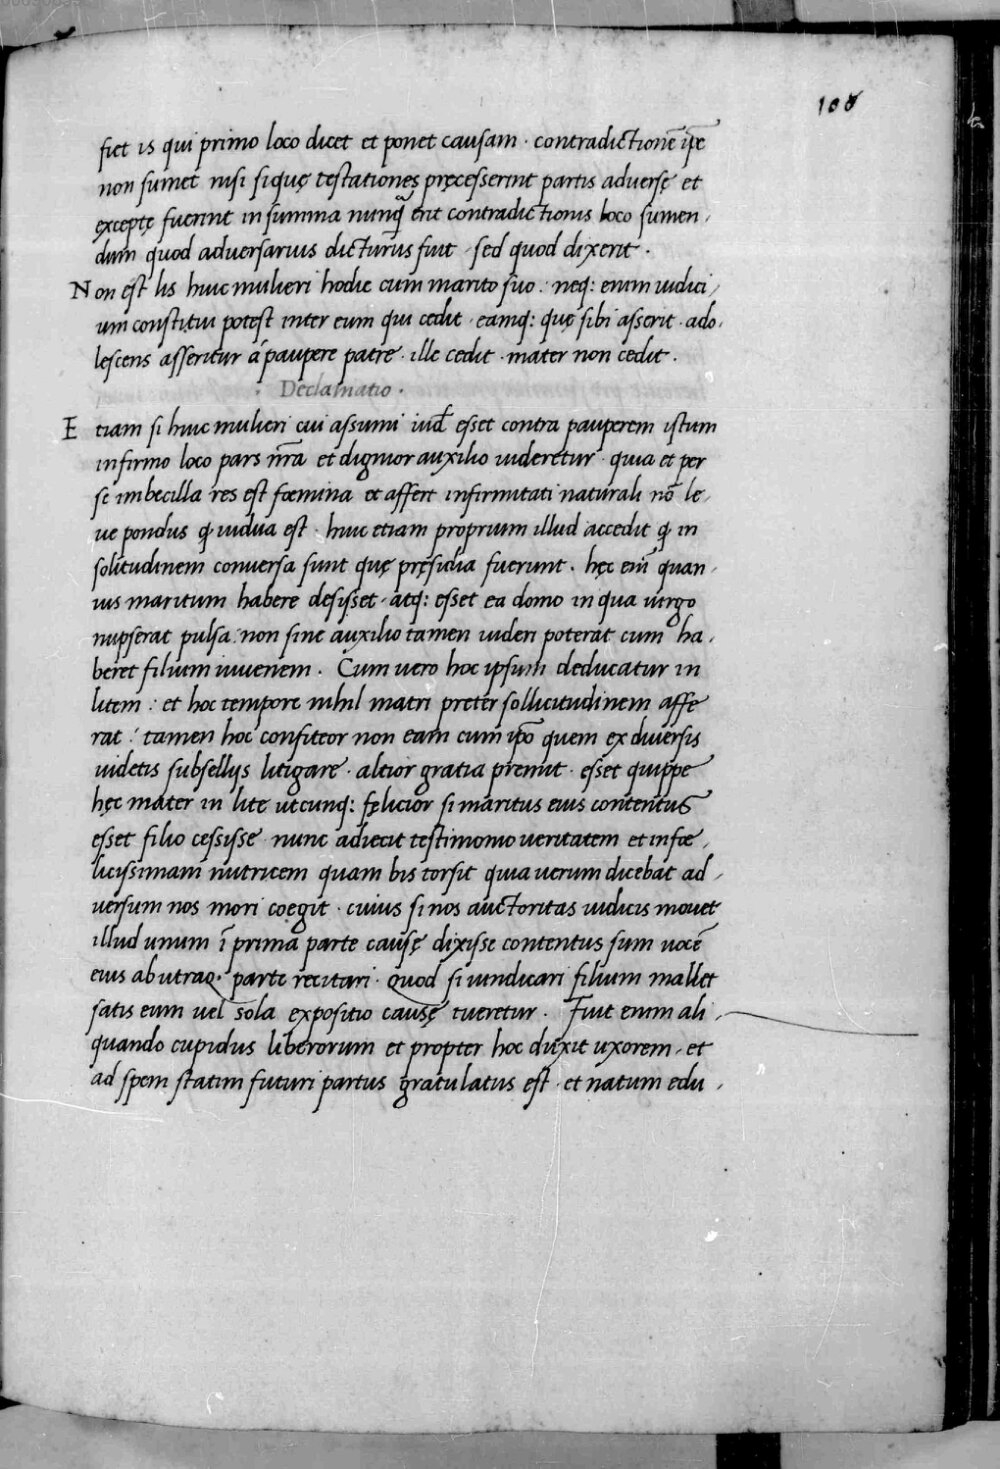 100
fiet is qui primo loco dicet et ponet causam · contradictionē ip̄e
non sumet nisi siquę testationes pręcesserint partis adversę et
exceptę fuerint in summa nunq̄ erit contradictionis loco sumen,
dum quod adversarius dicturus fuit · sed quod dixerit ·
Non est lis huic mulieri hodie cum marito suo : neq: enim iudici,
um constitui potest inter eum qui cedit · eamq: quę sibi asserit · ado,
lescens asseritur á paupere patre · ille cedit · mater non cedit ·
· Declamatio ·
Etiam si huic mulieri cui assumi iud̄ esset contra pauperem istum
infirmo loco pars nr̄a et dignior auxilio uideretur · quia et per
se imbecilla res est foemina et affert infirmitati naturali nō le,
ue pondus q̄ uidua est · huic etiam proprium illud accedit q̄ in
solitudinem conversa sunt quę pręsidia fuerunt · hęc eim̄ quan,
uis maritum habere desisset · atq: esset ea domo in qua uirgo
nupserat pulsa : non sine auxilio tamen uideri poterat cum ha,
beret filium iuvenem · Cum vero hoc ipsum deducatur in
litem : et hoc tempore nihil matri preter sollicitudinem affe
rat : tamen hoc confiteor non eam cum ip̄o quem ex diversis
uidetis subsellijs litigare · altior gratia premit · esset quippe
hęc mater in lite utcunq: fęlicior si maritus eius contentus
esset filio cessisse · nunc adiecit testimonio veritatem et infoe,
licissimam nutricem quam bis torsit quia uerum dicebat ad,
versum nos mori coegit · cuius si nos auctoritas iudicis mouet
illud unum ī prima parte causę dixisse contentus sum uocē
eius ab utraq· parte recitari · quod si uindicari filium mallet
satis eum uel sola expositio causę tueretur · Fuit enim ali,
quando cupidus liberorum et propter hoc duxit uxorem · et
ad spem statim futuri partus gratulatus est · et natum edu,